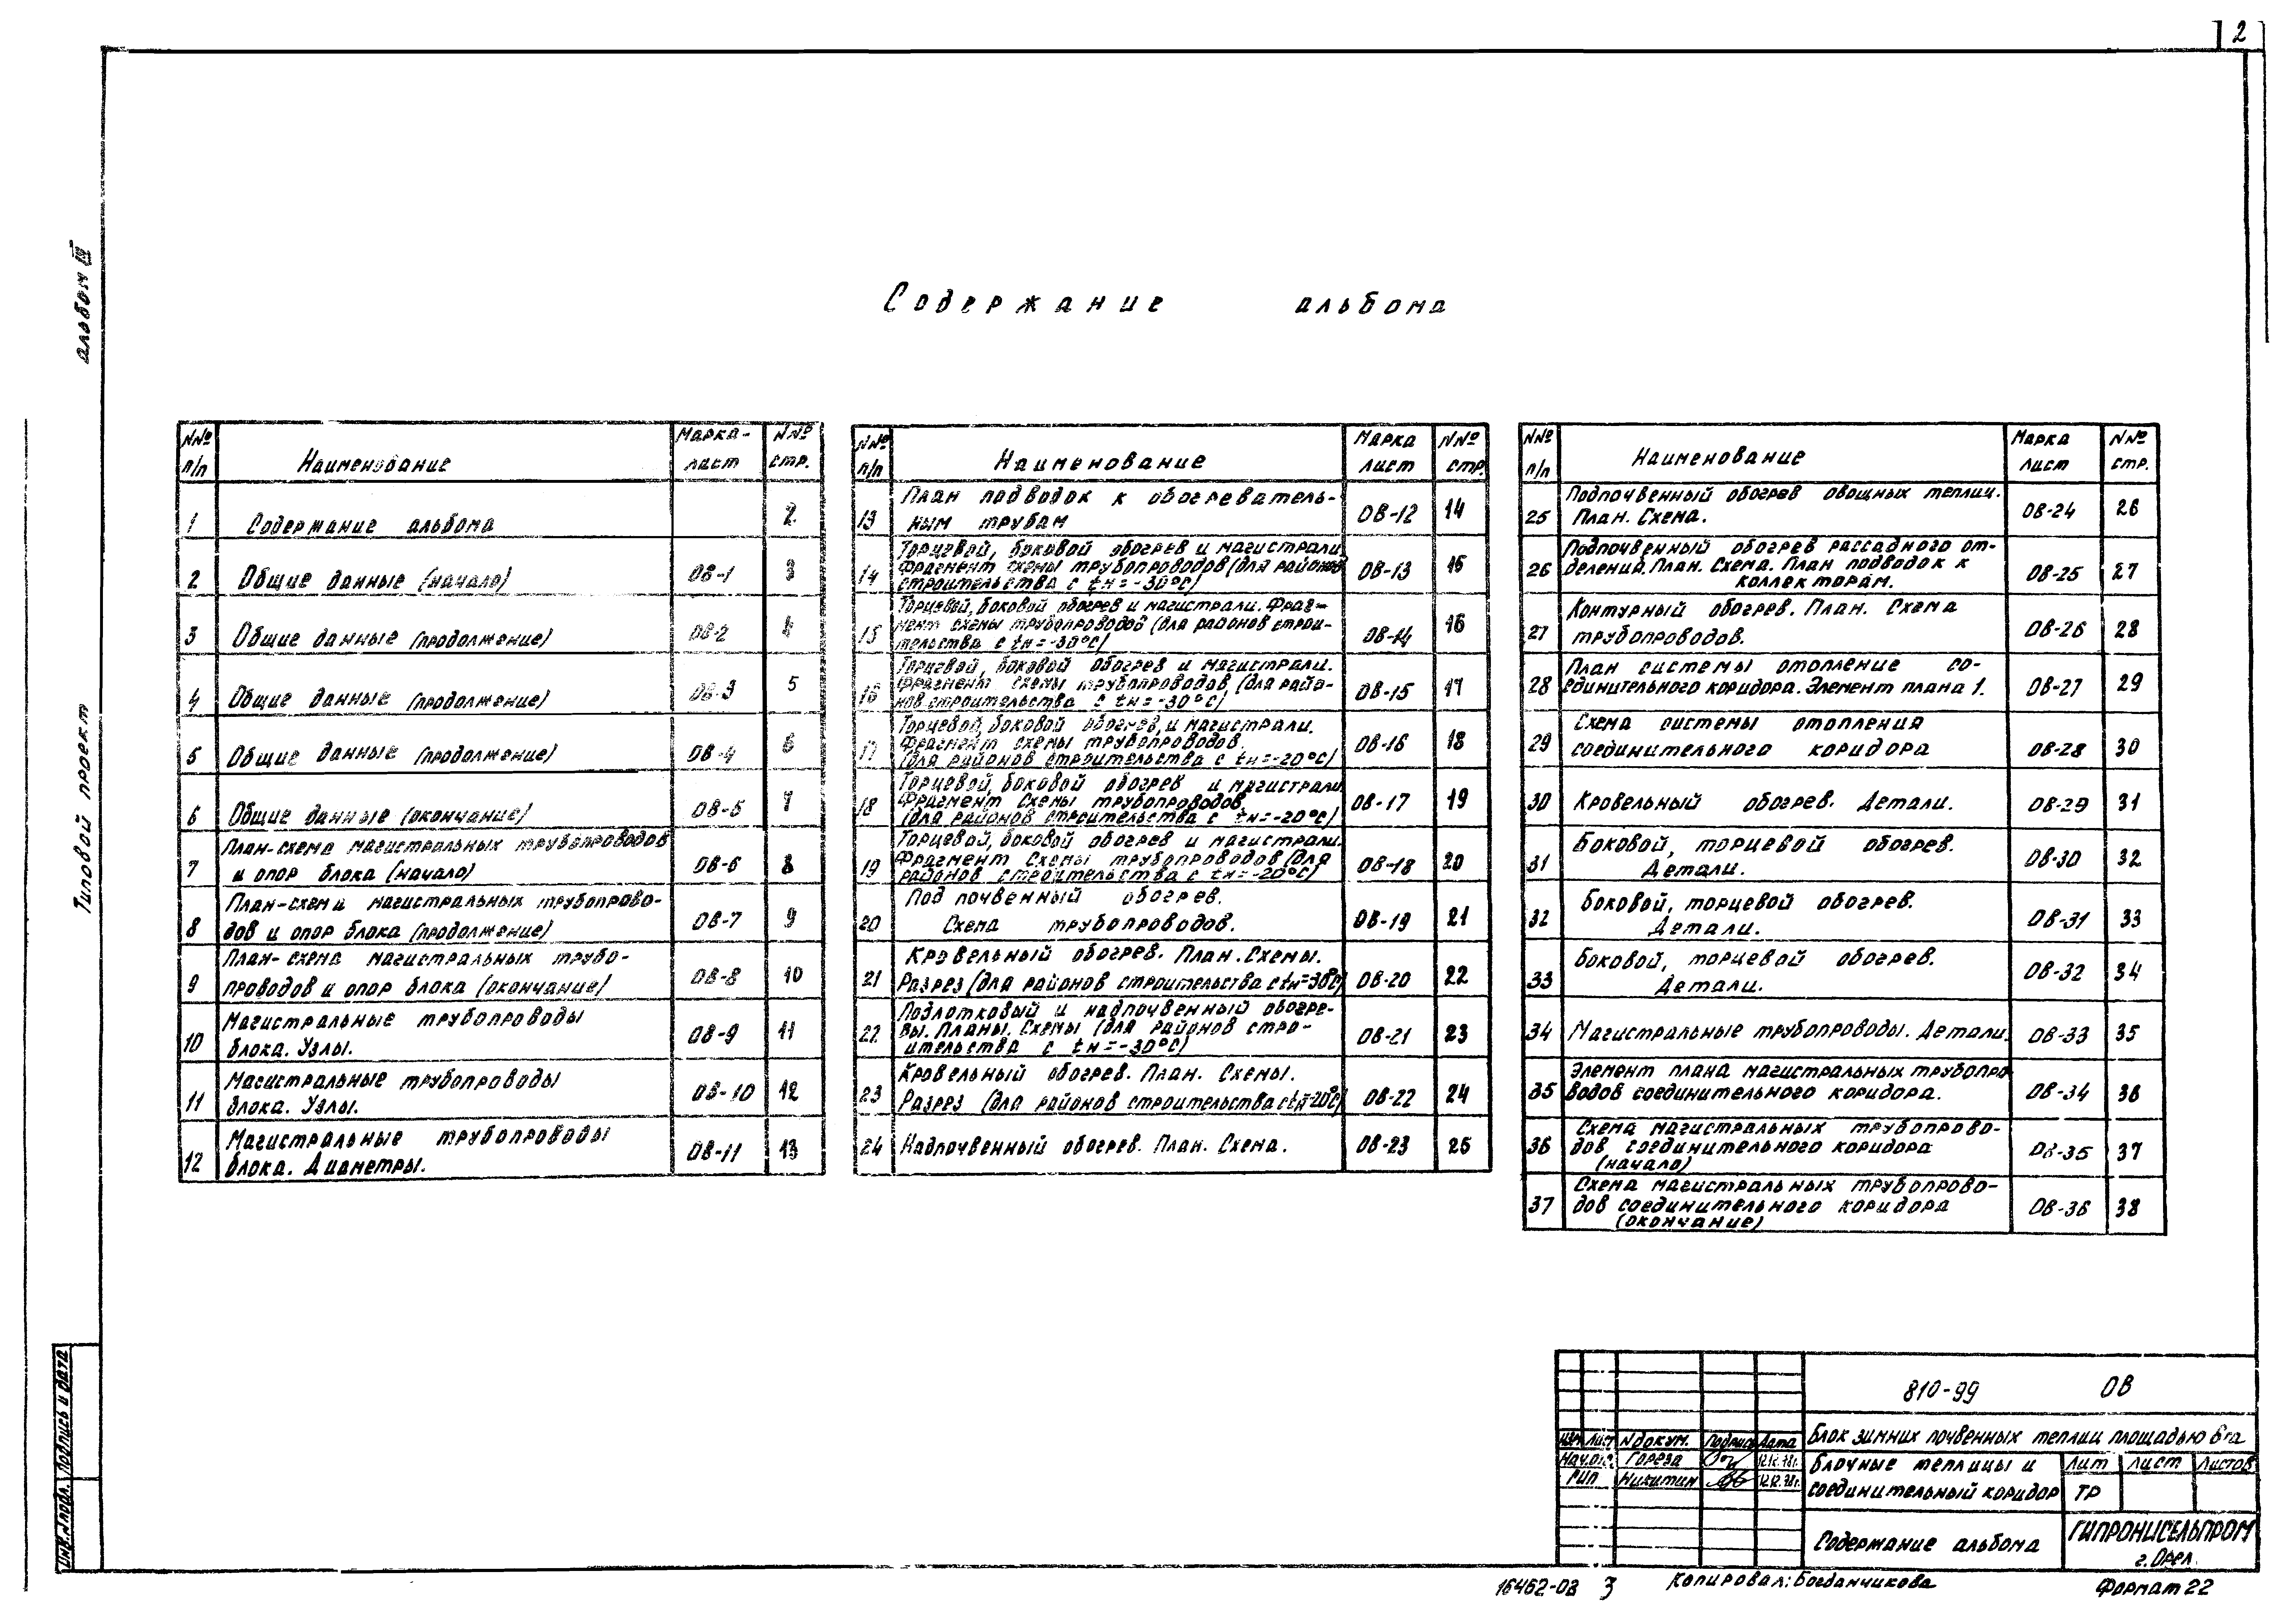 2
альбом IV
Типовой проект
Содержание альбома
NNº п/п Наименование Марка-лист NNº стр.
1 Содержание альбома 2
2 Общие данные (начало) ОВ-1 3
3 Общие данные (продолжение) ОВ-2 4
4 Общие данные (продолжение) ОВ-3 5
5 Общие данные (продолжение) ОВ-4 6
6 Общие данные (окончание) ОВ-5 7
7 План-схема магистральных трубопроводов
и опор блока (начало) ОВ-6 8
8 План-схема магистральных трубопрово-
дов и опор блока (продолжение) ОВ-7 9
9 План-схема магистральных трубо-
проводов и опор блока (окончание) ОВ-8 10
10 Магистральные трубопроводы
блока. Узлы. ОВ-9 11
11 Магистральные трубопроводы
блока. Узлы. ОВ-10 12
12 Магистральные трубопроводы
блока. Диаметры. ОВ-11 13
NNº п/п Наименование Марка лист NNº стр.
13 План подводок к обогреватель-
ным трубам ОВ-12 14
14 Торцевой, боковой обогрев и магистрали.
Фрагмент схемы трубопроводов (для районов
строительства с tн=-30°С) ОВ-13 15
15 Торцевой, боковой обогрев и магистрали. Фраг-
мент схемы трубопроводов (для районов строи-
тельства с tн=-30°С) ОВ-14 16
16 Торцевой, боковой обогрев и магистрали.
Фрагмент схемы трубопроводов (для райо-
нов строительства с tн=-30°С) ОВ-15 17
17 Торцевой, боковой обогрев, и магистрали.
Фрагмент схемы трубопроводов.
(для районов строительства с tн=-20°С) ОВ-16 18
18 Торцевой, боковой обогрев и магистрали
Фрагмент схемы трубопроводов.
(для районов строительства с tн=-20°С) ОВ-17 19
19 Торцевой, боковой обогрев и магистрали.
Фрагмент схемы трубопроводов (для
районов строительства с tн=-20°С) ОВ-18 20
20 Подпочвенный обогрев.
Схема трубопроводов. ОВ-19 21
21 Кровельный обогрев. План. Схемы.
Разрез (для районов строительства с tн=-30°С) ОВ-20 22
22 Подлотковый и надпочвенный обогре-
вы. Планы. Схемы (для районов стро-
ительства с tн=-30°С) ОВ-21 23
23 Кровельный обогрев. План. Схемы.
Разрез (для районов строительства с tн=-20°С) ОВ-22 24
24 Надпочвенный обогрев. План. Схема. ОВ-23 25
NNº п/п Наименование Марка лист NNº стр.
25 Подпочвенный обогрев овощных теплиц.
План. Схема. ОВ-24 26
26 Подпочвенный обогрев рассадного от-
деления. План. Схема. План подводок к
коллекторам. ОВ-25 27
27 Контурный обогрев. План. Схема
трубопроводов. ОВ-26 28
28 План системы отопление со-
единительного коридора. Элемент плана 1. ОВ-27 29
29 Схема системы отопления
соединительного коридора ОВ-28 30
30 Кровельный обогрев. Детали. ОВ-29 31
31 Боковой, торцевой обогрев.
Детали. ОВ-30 32
32 Боковой, торцевой обогрев.
Детали. ОВ-31 33
33 Боковой, торцевой обогрев.
Детали. ОВ-32 34
34 Магистральные трубопроводы. Детали. ОВ-33 35
35 Элемент плана магистральных трубопро
водов соединительного коридора. ОВ-34 36
36 Схема магистральных трубопрово-
дов соединительного коридора
(начало) ОВ-35 37
37 Схема магистральных трубопрово-
дов соединительного коридора
(окончание) ОВ-36 38
810-99 ОВ
Блок зимних почвенных теплиц площадью 6га
Изм Лист N докум. Подпись Дата
Нач.от. Гореза 12.12.78г.
ГИП Никитин 12.12.78г.
Блочные теплицы и
соединительный коридор
Лит Лист Листов
ТР
Содержание альбома
ГИПРОНИСЕЛЬПРОМ
г. Орел.
Инв.N подл. Подпись и дата
16462-03 3 Копировал: Богданчикова Формат 22